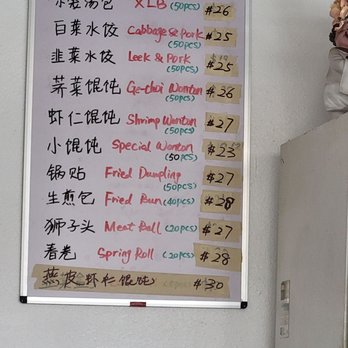 小籠汤包 XLB (50PCS) $26
白菜水饺 Cabbage & Pork (50PCS) $25
韭菜水饺 Leek & Pork (50PCS) $25
荠菜馄饨 Ge-thai Wonton (50PCS) $26
虾仁馄饨 Shrimp Wonton (50PCS) $27
小馄饨 Special Wonton (50PCS) $23
锅贴 Fried Dumpling (50PCS) $27
生煎包 Fried Bun (40PCS) $28
狮子头 Meat Ball (20PCS) $27
春卷 Spring Roll (20PCS) $28
燕皮虾仁馄饨 $30